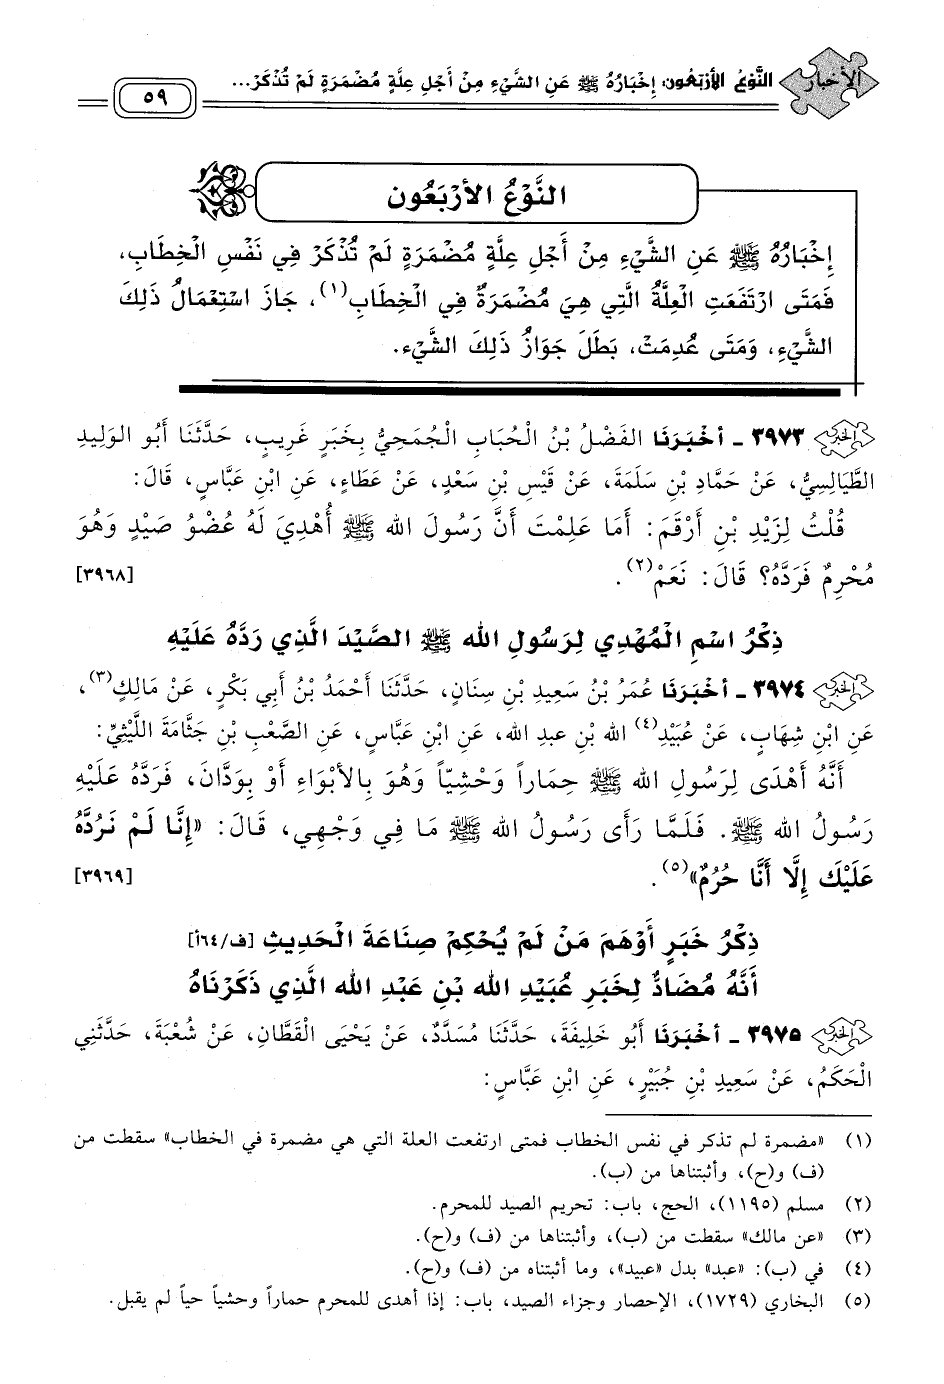 الأخبار
النَّوْعُ الأَرْبَعُون: إِخْبَارُهُ ﷺ عَنِ الشَّيْءِ مِنْ أَجْلِ عِلَّةٍ مُضْمَرَةٍ لَمْ تُذْكَرْ...
٥٩
النَّوْعُ الأَرْبَعُون
إِخْبَارُهُ ﷺ عَنِ الشَّيْءِ مِنْ أَجْلِ عِلَّةٍ مُضْمَرَةٍ لَمْ تُذْكَرْ فِي نَفْسِ الْخِطَابِ،
فَمَتَى ارْتَفَعَتِ الْعِلَّةُ الَّتِي هِيَ مُضْمَرَةٌ فِي الْخِطَابِ(١)، جَازَ اسْتِعْمَالُ ذَلِكَ
الشَّيْءِ، وَمَتَى عُدِمَتْ، بَطَلَ جَوَازُ ذَلِكَ الشَّيْءِ.
الخبر ٣٩٧٣ ـ أخْبَرَنَا الفَضْلُ بْنُ الْحُبَابِ الْجُمَحِيُّ بِخَبَرٍ غَرِيبٍ، حَدَّثَنَا أَبُو الوَلِيدِ
الطَّيَالِسِيُّ، عَنْ حَمَّادِ بْنِ سَلَمَةَ، عَنْ قَيْسِ بْنِ سَعْدٍ، عَنْ عَطَاءٍ، عَنِ ابْنِ عَبَّاسٍ، قَالَ:
قُلْتُ لِزَيْدِ بْنِ أَرْقَمَ: أَمَا عَلِمْتَ أَنَّ رَسُولَ الله ﷺ أُهْدِيَ لَهُ عُضْوُ صَيْدٍ وَهُوَ
مُحْرِمٌ فَرَدَّهُ؟ قَالَ: نَعَمْ(٢). [٣٩٦٨]
ذِكْرُ اسْمِ الْمُهْدِي لِرَسُولِ الله ﷺ الصَّيْدَ الَّذِي رَدَّهُ عَلَيْهِ
الخبر ٣٩٧٤ ـ أخْبَرَنَا عُمَرُ بْنُ سَعِيدِ بْنِ سِنَانٍ، حَدَّثَنَا أَحْمَدُ بْنُ أَبِي بَكْرٍ، عَنْ مَالِكٍ(٣)،
عَنِ ابْنِ شِهَابٍ، عَنْ عُبَيْدِ(٤) الله بْنِ عبدِ الله، عَنِ ابْنِ عَبَّاسٍ، عَنِ الصَّعْبِ بْنِ جَثَّامَةَ اللَّيْثِيِّ:
أَنَّهُ أَهْدَى لِرَسُولِ الله ﷺ حِمَاراً وَحْشِيّاً وَهُوَ بِالأَبْوَاءِ أَوْ بِوَدَّانَ، فَرَدَّهُ عَلَيْهِ
رَسُولُ الله ﷺ. فَلَمَّا رَأَى رَسُولُ الله ﷺ مَا فِي وَجْهِي، قَالَ: «إِنَّا لَمْ نَرُدَّهُ
عَلَيْكَ إِلَّا أَنَّا حُرُمٌ»(٥). [٣٩٦٩]
ذِكْرُ خَبَرٍ أَوْهَمَ مَنْ لَمْ يُحْكِمْ صِنَاعَةَ الْحَدِيثِ [ف/٦٤أ]
أَنَّهُ مُضَادٌّ لِخَبَرِ عُبَيْدِ الله بْنِ عَبْدِ الله الَّذِي ذَكَرْنَاهُ
الخبر ٣٩٧٥ ـ أخْبَرَنَا أَبُو خَلِيفَةَ، حَدَّثَنَا مُسَدَّدٌ، عَنْ يَحْيَى الْقَطَّانِ، عَنْ شُعْبَةَ، حَدَّثَنِي
الْحَكَمُ، عَنْ سَعِيدِ بْنِ جُبَيْرٍ، عَنِ ابْنِ عَبَّاسٍ:
(١) «مضمرة لم تذكر في نفس الخطاب فمتى ارتفعت العلة التي هي مضمرة في الخطاب» سقطت من
(ف) و(ح)، وأثبتناها من (ب).
(٢) مسلم (١١٩٥)، الحج، باب: تحريم الصيد للمحرم.
(٣) «عن مالك» سقطت من (ب)، وأثبتناها من (ف) و(ح).
(٤) في (ب): «عبد» بدل «عبيد»، وما أثبتناه من (ف) و(ح).
(٥) البخاري (١٧٢٩)، الإحصار وجزاء الصيد، باب: إذا أهدى للمحرم حماراً وحشياً حياً لم يقبل.